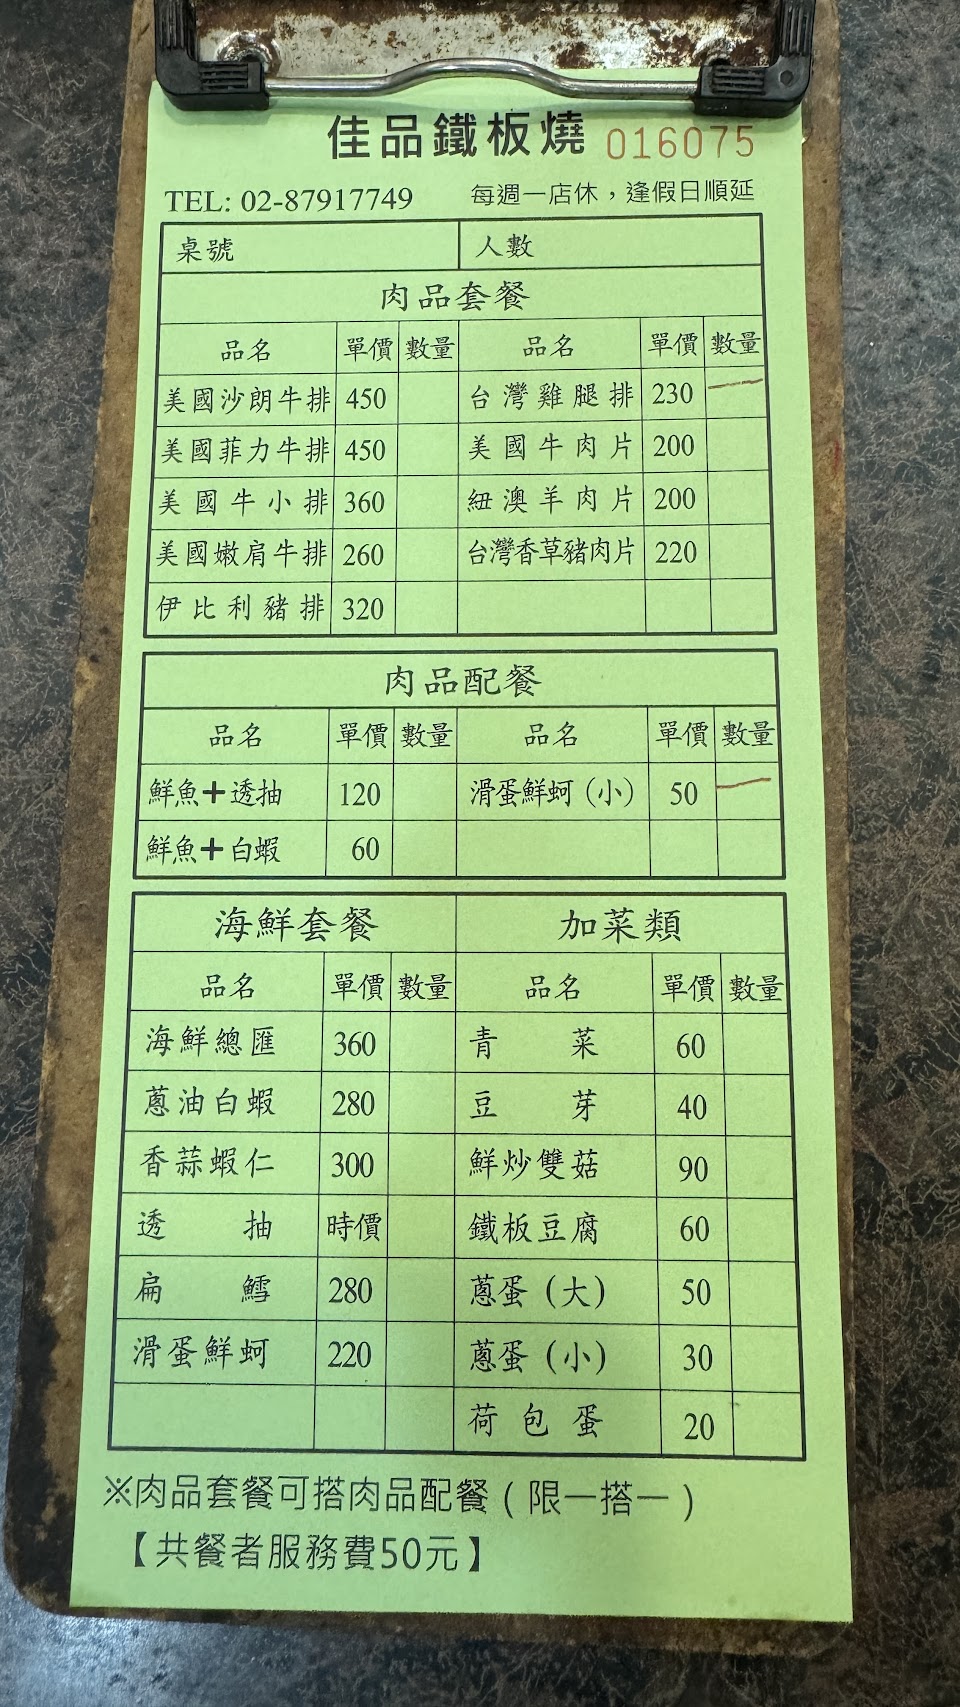 佳品鐵板燒 016075
TEL: 02-87917749 每週一店休，逢假日順延
桌號 人數
肉品套餐
品名 單價 數量 品名 單價 數量
美國沙朗牛排 450 台灣雞腿排 230 一
美國菲力牛排 450 美國牛肉片 200
美國牛小排 360 紐澳羊肉片 200
美國嫩肩牛排 260 台灣香草豬肉片 220
伊比利豬排 320
肉品配餐
品名 單價 數量 品名 單價 數量
鮮魚+透抽 120 滑蛋鮮蚵（小） 50 一
鮮魚+白蝦 60
海鮮套餐 加菜類
品名 單價 數量 品名 單價 數量
海鮮總匯 360 青菜 60
蔥油白蝦 280 豆芽 40
香蒜蝦仁 300 鮮炒雙菇 90
透抽 時價 鐵板豆腐 60
扁鱈 280 蔥蛋（大） 50
滑蛋鮮蚵 220 蔥蛋（小） 30
荷包蛋 20
※肉品套餐可搭肉品配餐（限一搭一）
【共餐者服務費50元】